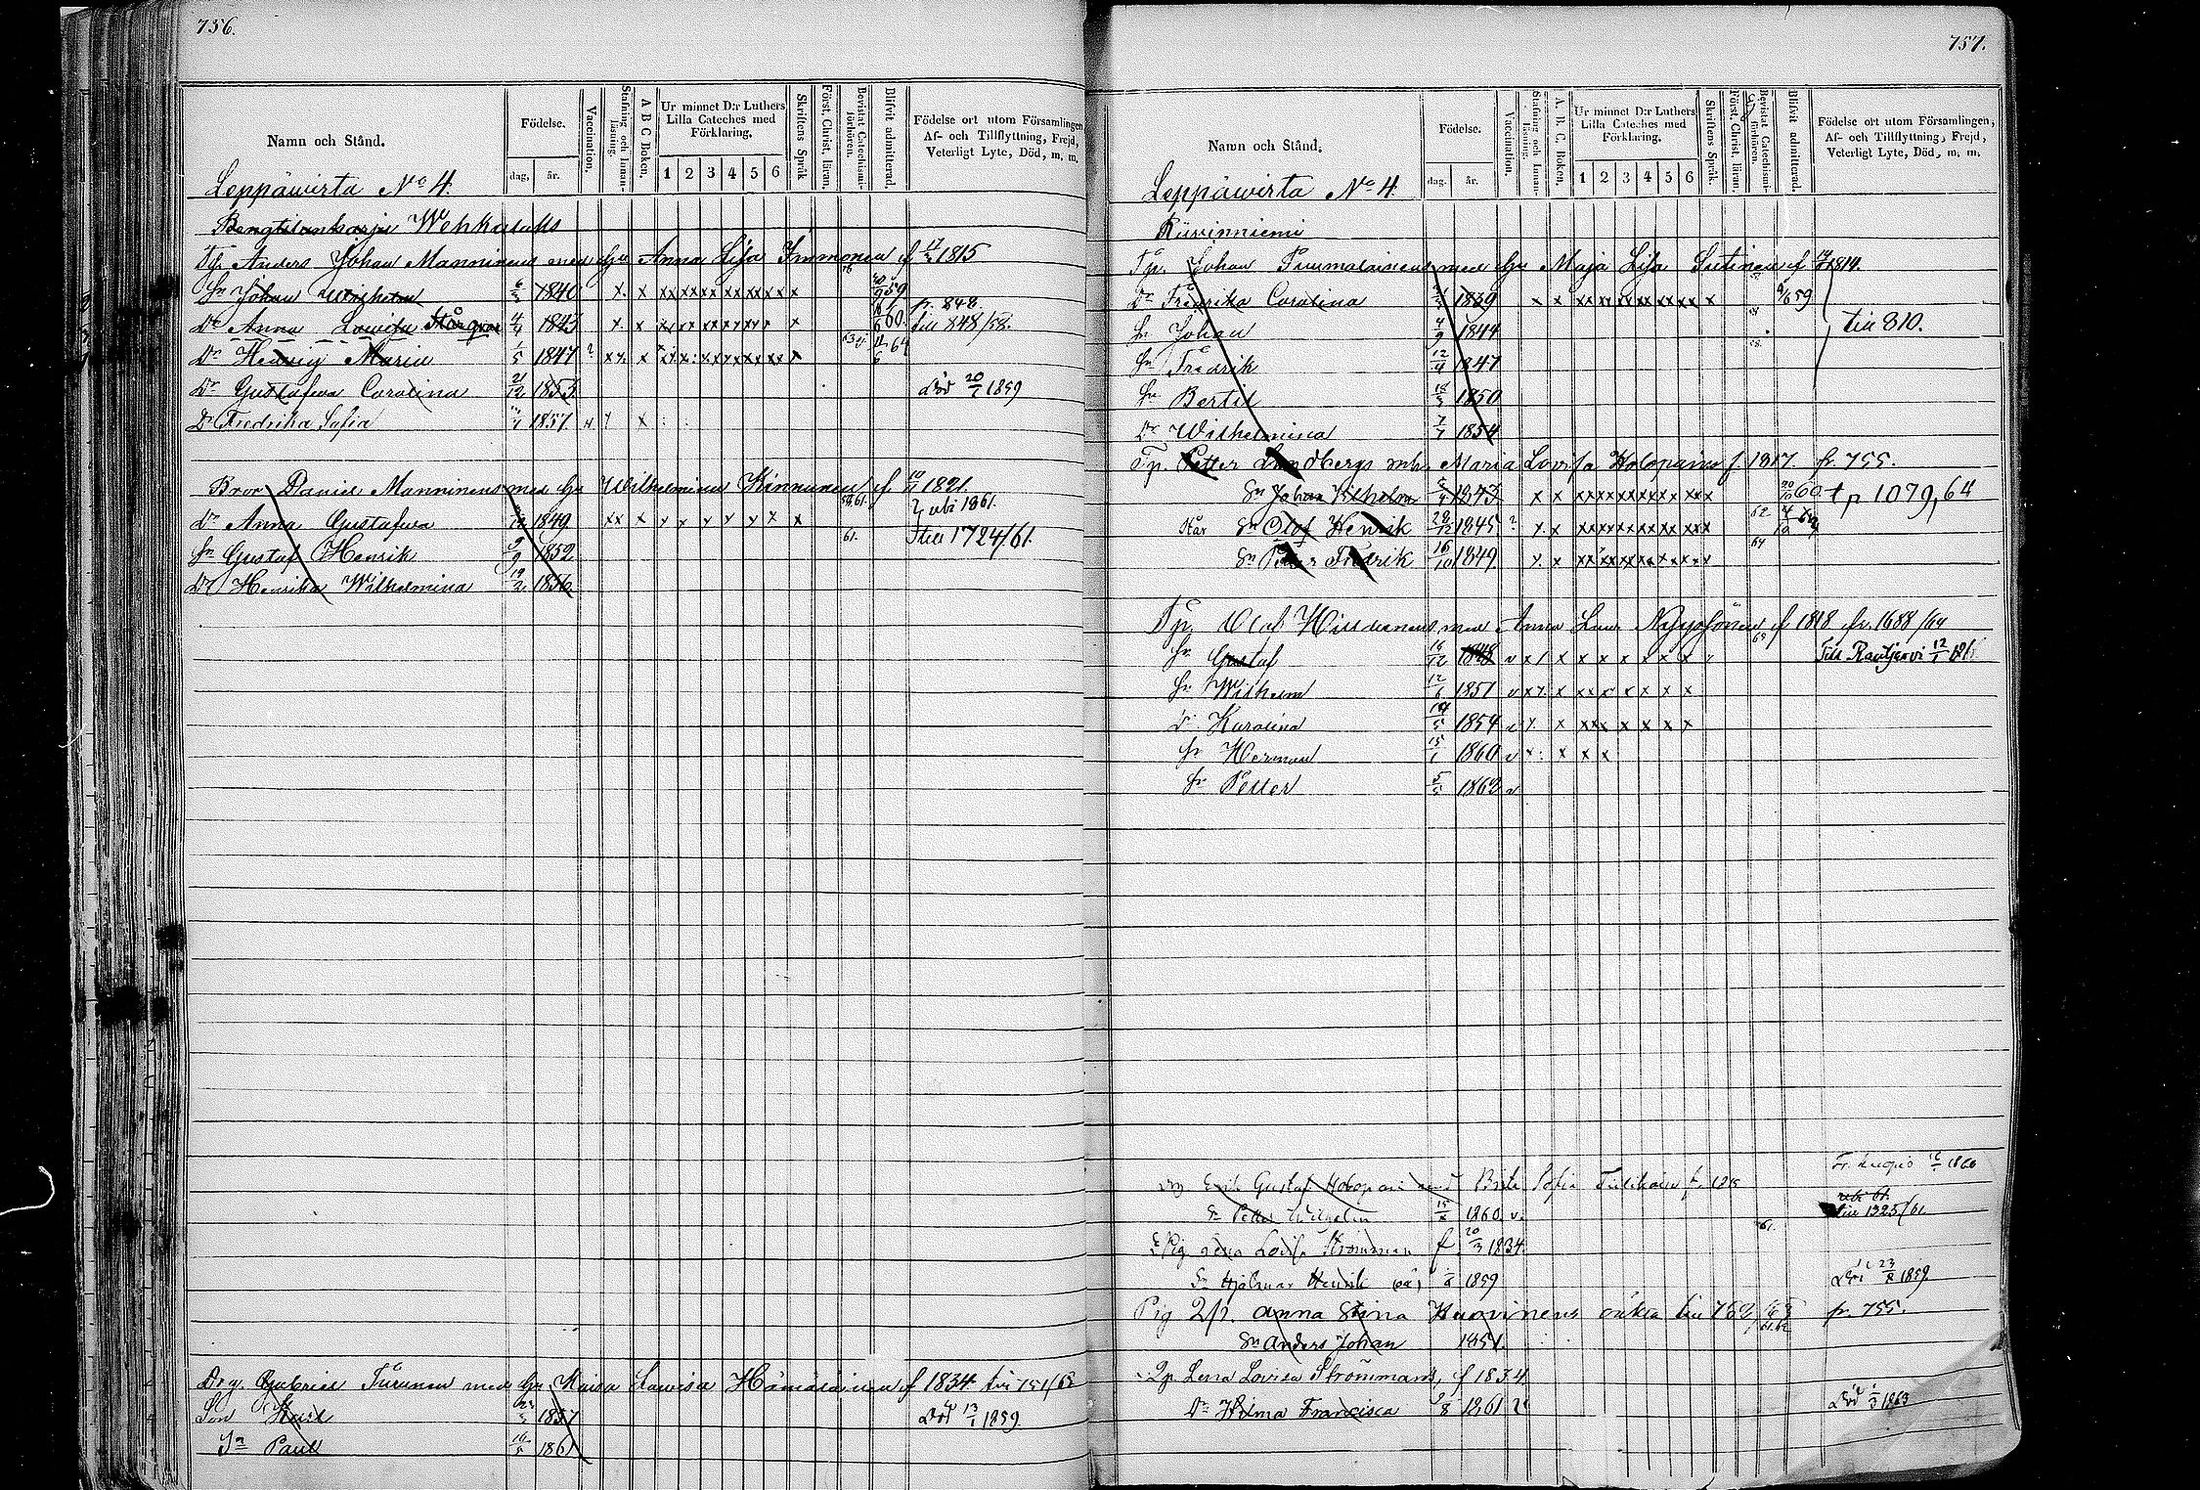 756.
Namn och Stånd.
Födelse.
dag, år.
Vaccination.
Stafning och Innanläsning.
A B C Boken.
Ur minnet D:r Luthers Lilla Cateches med Förklaring.
1 2 3 4 5 6
Skriftens Språk
Först. Christ. läran.
Bevistat Catechismiförhören.
Blifvit admitterad.
Födelse ort utom Församlingen, Af- och Tillflyttning, Frejd, Veterligt Lyte, Död, m. m.
Leppäwirta No 4
Wehkalaks
Anders Johan Manninens med hu Anna Lisa Immonen f 1815
Sn Johan Wilhelm 1840 x x xx xx xx xx xx x x 59
Dr Anna Lowisa Står qvar 4/4 1843 x x x 60. p. 848. till 848/58.
Dr Hedvig Maria 1/5 1847 ? x x x 11/6 64
Dr Gustafva Carolina 21/12 1853. död 20/1 1859
Dr Fredrika Sofia 1857 x
Bror Daniel Manninens med hu Wilhelmina Kinnunen f 1821
Dr Anna Gustafva 1849 xx x x x x x x x x ubi 1861.
Sn Gustaf Henrik 9/9 1852 61. till 1724/61.
Dr Henrika Wilhelmina 19/2 1856
Drg. Gabriel Turunen med hu Maria Lowisa Hämäläinen f 1834 till 751/62
Son Karl 1857 Död 13/1 1859.
Sn Paul 1861
757.
Namn och Stånd.
Födelse.
dag. år.
Vaccination.
Stafning och Innanläsning.
A. B. C. Boken.
Ur minnet D:r Luthers Lilla Cateches med Förklaring.
1 2 3 4 5 6
Skriftens Språk.
Först. Christ. läran.
Bevistat Catechismiförhören.
Blifvit admitterad.
Födelse ort utom Församlingen, Af- och Tillflyttning, Frejd, Veterligt Lyte, Död, m. m.
Leppäwirta No 4.
Riivinniemi
Tp. Johan Tuumalainens med hu Maja Lisa Sutinen f 1814.
Dr Fredrika Carolina 1839 x x xx xx xx xx xx x x 59
Sn Johan 4/9 1844 till 810.
Sn Fredrik 12/4 1847
Sn Bertil 18/3 1850
Dr Wilhelmina 7/7 1854
Tp. Petter Lundbergs enk. Maria Lovisa Holopainen f 1817. fr. 755.
Sn Johan Wilhelm 1843 x x 60 t p 1079, 64
Står Sn Olof Henrik 28/12 1845 ? x x 62
Sn Petter Fredrik 16/10 1849 x x 64
Tp. Olof Anna f 1818 fr. 1688/64
Sn Gustaf 14/12 1848 v x x x x x x x x x Till Rautjärvi 12/1
Sn Wilhelm 12/6 1851 v x x x x x x x x x
Dr Karolina 14/5 1854 v x x x x x x x x
Sn Herman 15/1 1860 v x x x x
Sn Petter 5/5 1862 v
Gustaf Holopainen med Brita Sofia f. 16/1 1860
Sn Petter Wilhelm 1860 v. till 1325/61.
Pig Lena Lovisa Strömman f. 20/3 1834. 61.
Sn Hjalmar Henrik (oä) 1859 Död 23/8 1859
Pig 2/p. Anna Stina Kuovinens till 762 fr. 755.
Sn Anders Johan 1851.
2p Lena Lovisa Strömmans, f 1834
Dr Hilma Francisca 2/8 1861 Död 1/3 1863